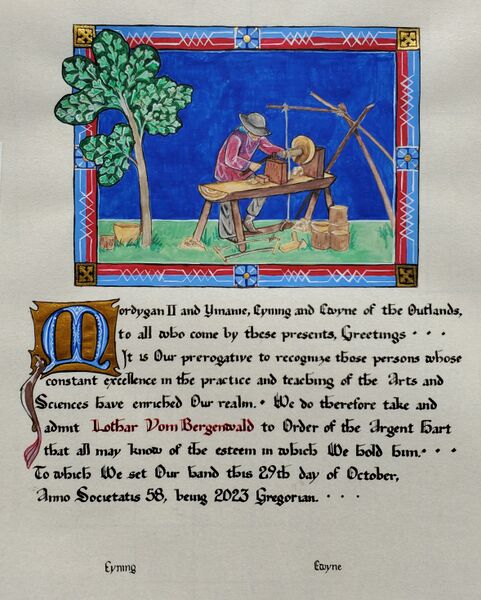 Mordygan II and Ymanie, Cyning and Cwyne of the Outlands,
to all who come by these presents, Greetings · · ·
It is Our prerogative to recognize those persons whose
constant excellence in the practice and teaching of the Arts and
Sciences have enriched Our realm. · We do therefore take and
admit Lothar Vom Bergenwald to Order of the Argent Hart
that all may know of the esteem in which We hold him. · · ·
To which We set Our hand this 29th day of October,
Anno Societatis 58, being 2023 Gregorian. · · ·
Cyning Cwyne